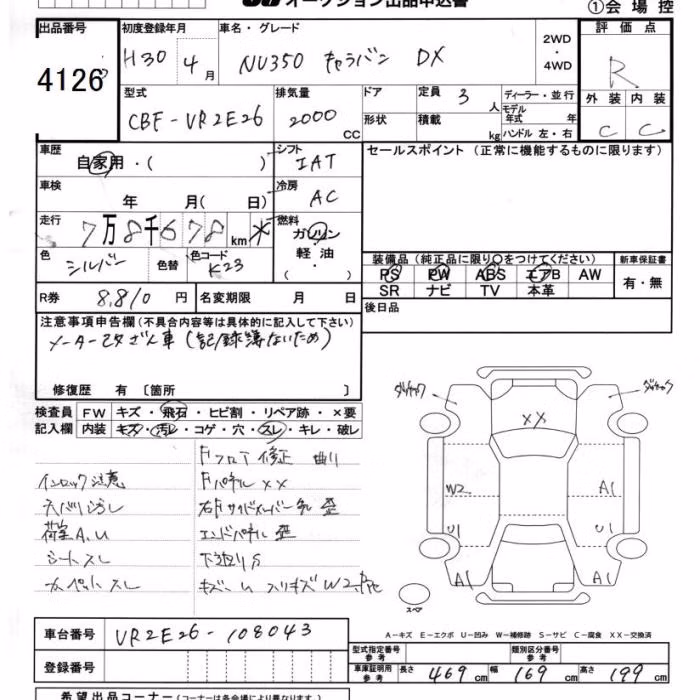 オークション出品申込書
①会場控
出品番号 4126
初度登録年月 H30 4月
車名・グレード NV350 キャラバン DX
2WD・4WD
評価点 R
外装 C 内装 C
型式 CBF-VR2E26
排気量 2000 CC
ドア 形状
定員 3 人
積載 kg
ディーラー・並行
モデル年式 年
ハンドル 左・右
車歴 自家用・( )
シフト IAT
セールスポイント(正常に機能するものに限ります)
車検 年 月( 日)
冷房 AC
走行 7万8千678km *
燃料 ガソリン 軽油 ( ・ )
色 シルバー 色替 色コード K23
装備品(純正品に限り○をつけてください)
新車保証書
PS PW ABS エアB AW
SR ナビ TV 本革
有・無
R券 8,810円 名変期限 月 日
後日品
注意事項申告欄(不具合内容等は具体的に記入して下さい)
メーター改ざん車(記録簿ないため)
修復歴 有〔箇所 〕
検査員記入欄
FW キズ・飛石・ヒビ割・リペア跡・×要
内装 キズ・汚レ・コゲ・穴・スレ・キレ・破レ
Fフロア修正 曲り
インロック注意 Fパネル××
天バリ汚レ 右Fサイドメンバー先歪
荷室A、U エンドパネル歪
シートスレ 下廻りS
カーペットスレ
XX
W2 A1
U1 U1
A1 A1
スペア
A-キズ E-エクボ U-凹み W-補修跡 S-サビ C-腐食 XX-交換済
車台番号 VR2E26-108043
型式指定番号 参考
類別区分番号 参考
登録番号
車庫証明用 参考 長さ 469 cm 幅 169 cm 高さ 199 cm
希望出品コーナー(コーナーは各会場により異なります。)